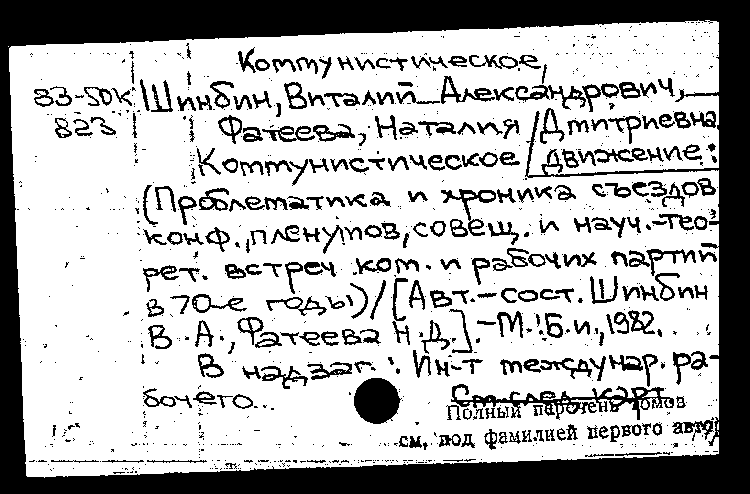 Коммунистическое,
83-50к Шинбин, Виталий Александрович,
823 Фатеева, Наталия Дмитриевна
Коммунистическое движение:
(Проблематика и хроника съездов
конф., пленумов, совещ. и науч.-тео-
рет. встреч ком. и рабочих партий
в 70-е годы) / [Авт.-сост. Шинбин
В. А., Фатеева Н. Д.]. - М.: Б.и., 1982.
В надзаг.: Ин-т междунар. ра-
бочего...
См след. карт
Полный перечень томов
см. под фамилией первого автор